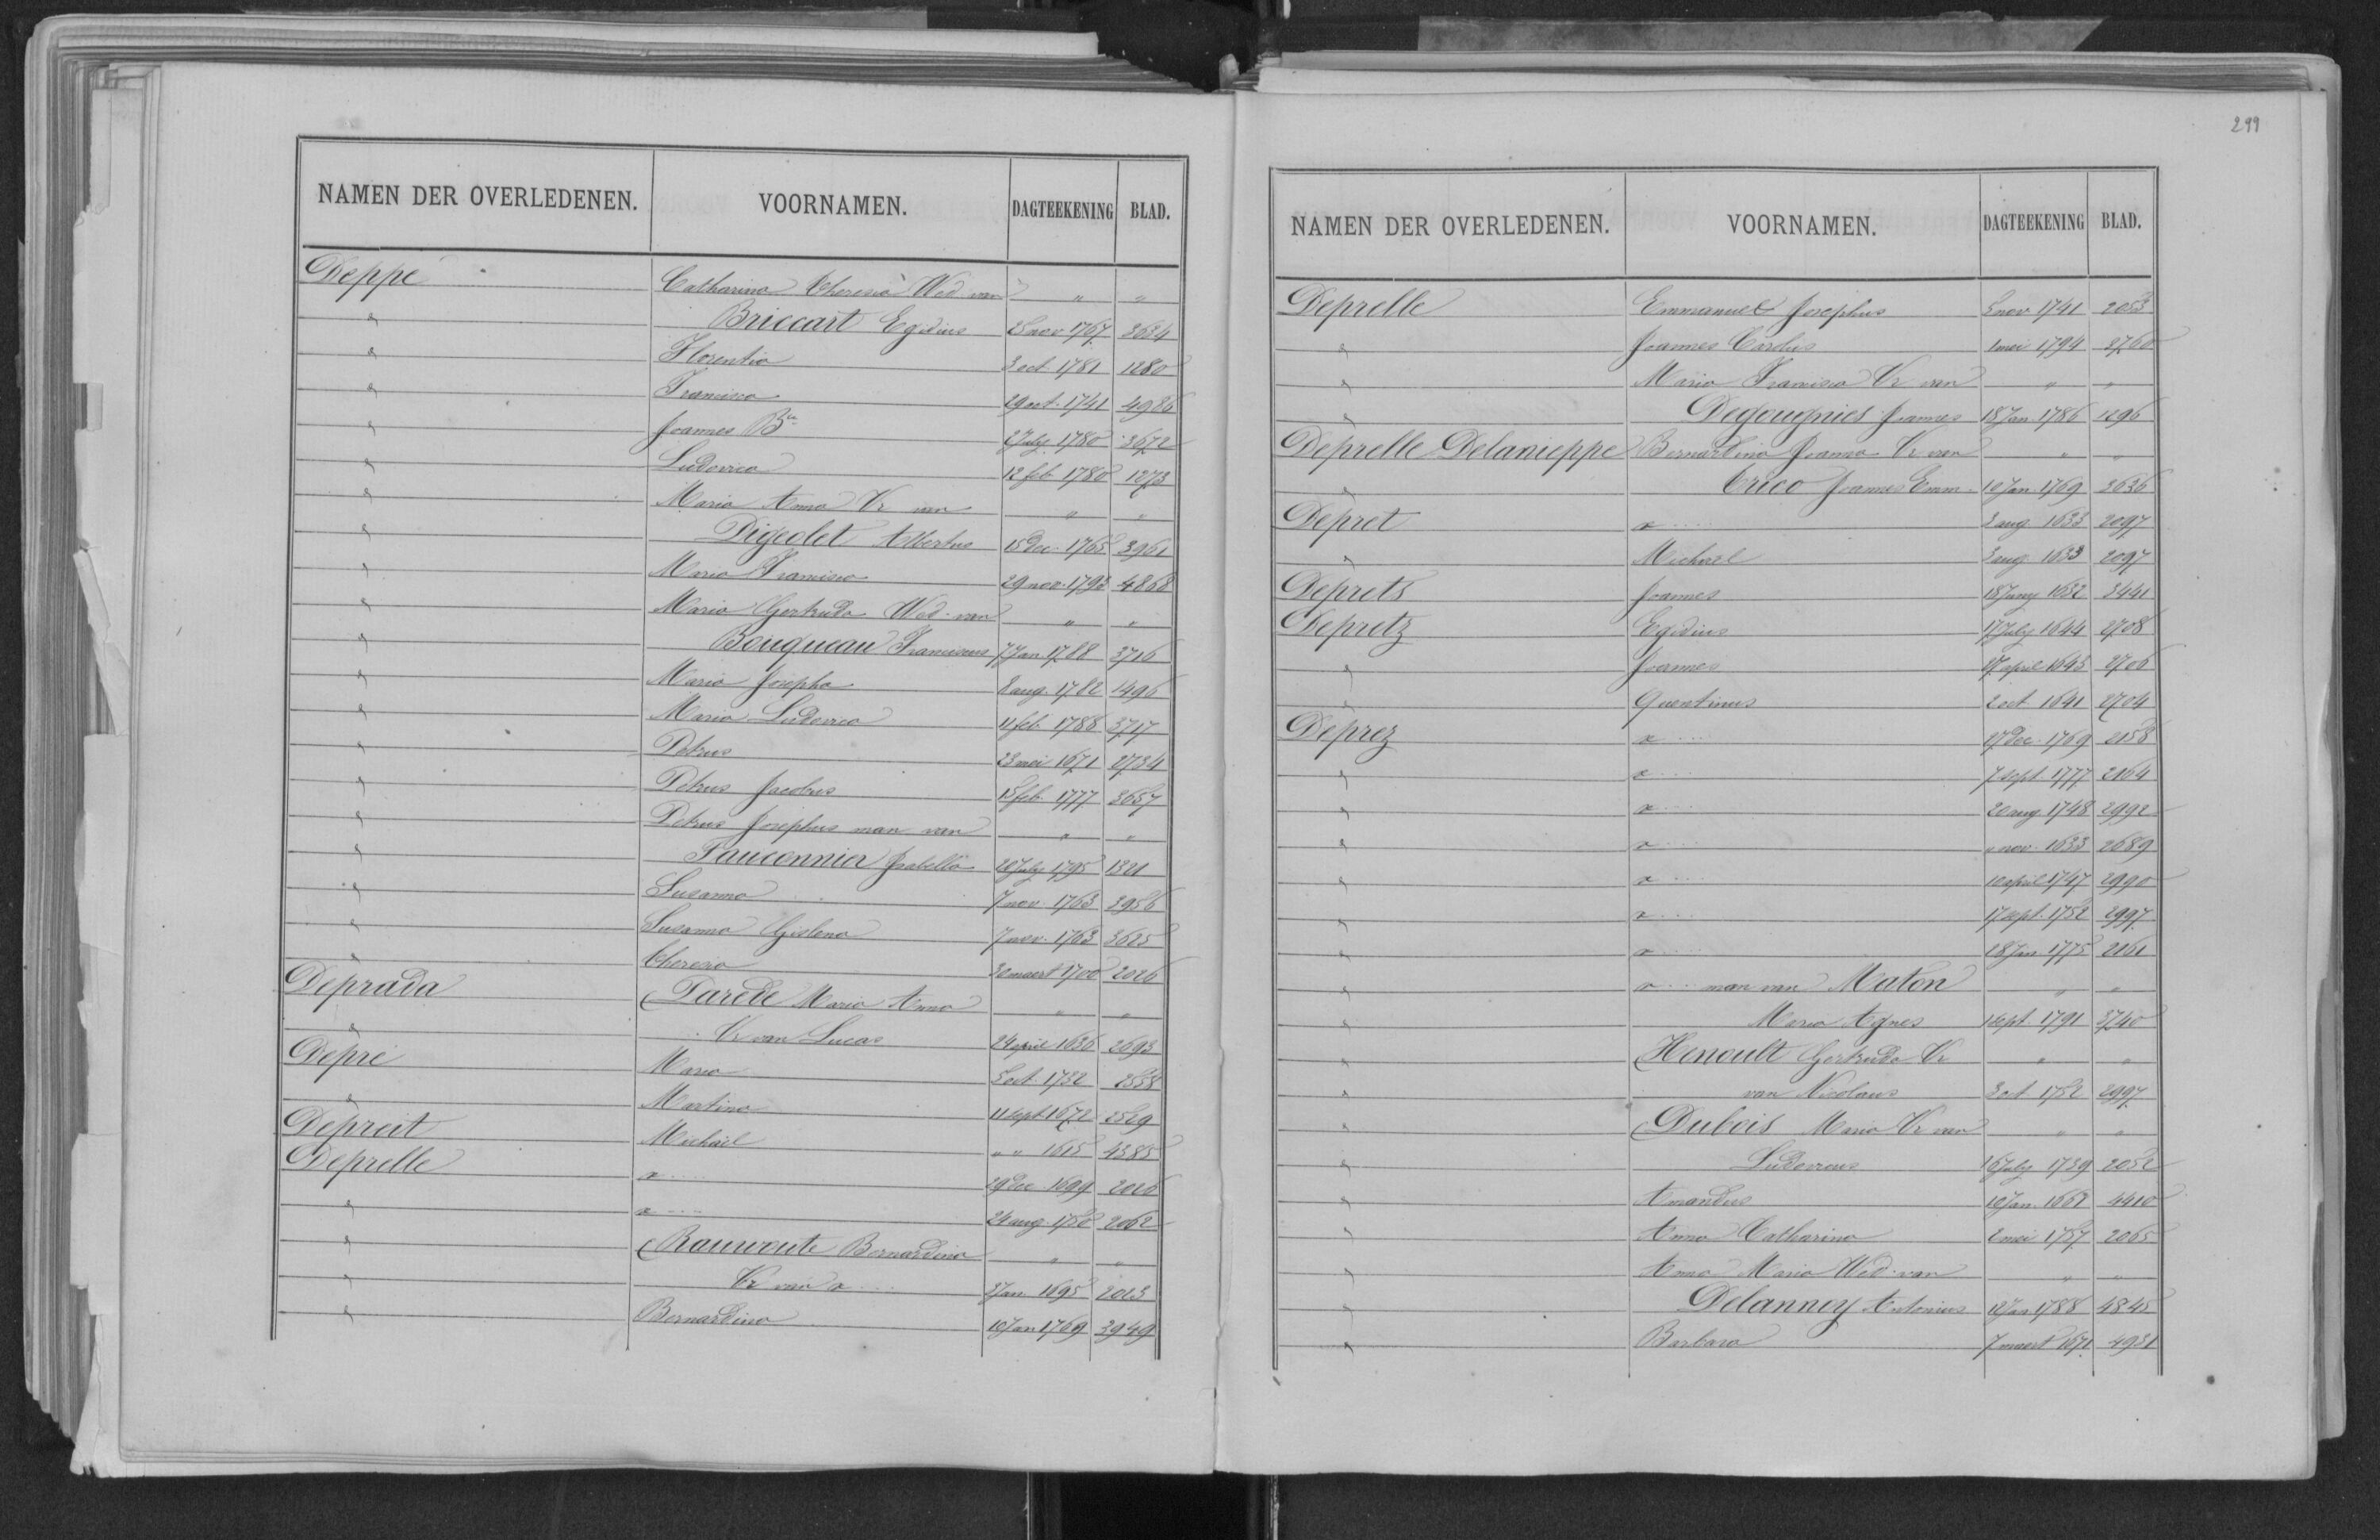 NAMEN DER OVERLEDENEN. VOORNAMEN. DAGTEEKENING BLAD.
Deppe Catharina Theresia Wed. van " "
" Briccart Egidius 25 nov 1767 3634
" Florentia 3 oct. 1781 1280
" Francisca 29 oct. 1741 4986
" Joannes Bta 2 July 1780 3672
" Ludovica 12 feb. 1780 1273
" Maria Anna Vr van " "
" Digeolet Albertus 15 dec. 1765 3961
" Maria Francisca 29 nov. 1793 4868
" Maria Gertrudis Wed. van " "
" Bouqueau Franciscus 7 Jan 1788 3716
" Maria Josepha 8 aug. 1782 1496
" Maria Ludovica 11 feb. 1788 3717
" Petrus 23 mei 1671 2734
" Petrus Jacobus 15 feb. 1777 3657
" Petrus Josephus man van " "
" Fauconnier Isabella 20 July 1795 1321
" Susanna 7 nov. 1763 3956
" Susanna Gislena 7 nov. 1763 3625
" Theresia 30 maert 1700 2026
Deprada (Parede Maria Anna " "
" Vr van Lucas 24 april 1636 2693
Depré Maria 5 oct. 1732 2558
" Martina 11 sept. 1672 2569
Depreit Michael " " 1615 4385
Deprelle x.... 29 dec. 1699 2026
" x.... 24 aug. 1750 2062
" (Rauwoute Bernardina " "
" Vr van x.... 3 Jan. 1695 2023
" Bernardina 10 Jan 1769 3949
299
NAMEN DER OVERLEDENEN. VOORNAMEN. DAGTEEKENING BLAD.
Deprelle Emmanuel Josephus 5 nov. 1741 2053
" Joannes Carolus 1 mei 1794 3760
" Maria Francisca Vr van " "
" Degougnies Joannes 18 Jan. 1786 1296
Deprelle Delanieppe Bernardina Joanna Vr van " "
" Crico Joannes Emm. 10 Jan. 1769 3636
Depret x.... 3 aug. 1633 2097
" Michael 3 aug. 1633 2097
Deprets Joannes 18 Juny 1632 3441
Depretz Egidius 17 July 1644 2708
" Joannes 17 april 1643 2706
" Quentinus 2 oct 1641 2704
Deprez x.... 17 dec. 1769 2158
" x.... 7 sept. 1777 2164
" x.... 20 aug. 1748 2992
" x.... " nov. 1633 2689
" x.... 10 april 1747 2990
" x.... 17 sept. 1752 2997
" x.... 28 Jan 1775 2161
" x.... man van Maton " "
" Maria Agnes 1 sept. 1791 3740
" (Henoult Gertrudis Vr " "
" van Nicolaus 3 oct. 1752 2997
" (Dubois Maria Vr van " "
" Ludovicus 16 July 1739 2052
" Amandus 10 Jan. 1662 4410
" Anna Catharina 2 mei 1757 2065
" Anna Maria Wed. van " "
" Delannoy Antonius 12 Jan 1788 4845
" Barbara 7 maert 1671 4931